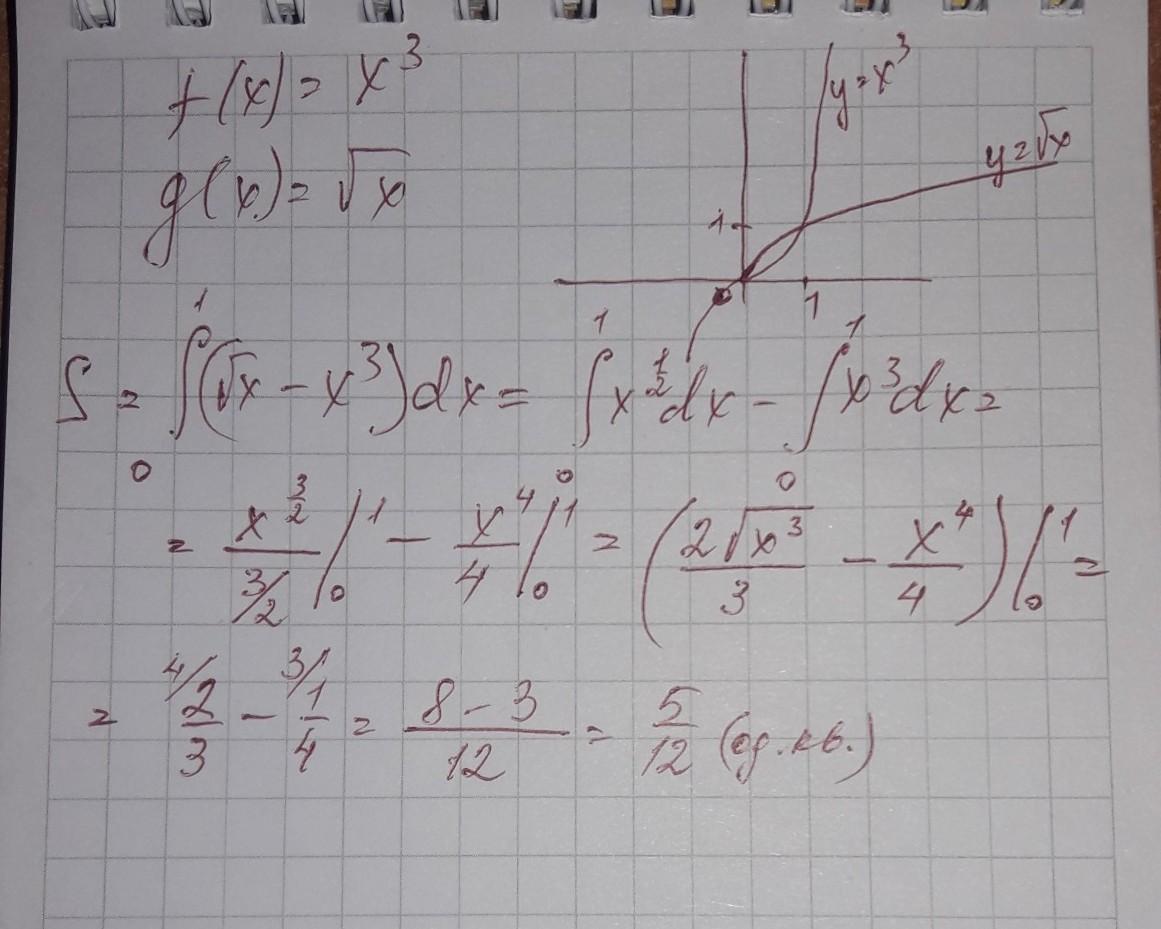 f(x) = x³
g(x) = √x
y=x³
y=√x
1
0
1
S = ∫₀¹(√x − x³)dx = ∫₀¹ x^(1/2) dx − ∫₀¹ x³dx =
= x^(3/2)/(3/2) |₀¹ − x⁴/4 |₀¹ = (2√x³/3 − x⁴/4) |₀¹ =
= ⁴⁄ 2/3 − ³⁄ 1/4 = (8 − 3)/12 = 5/12 (ед.кв.)